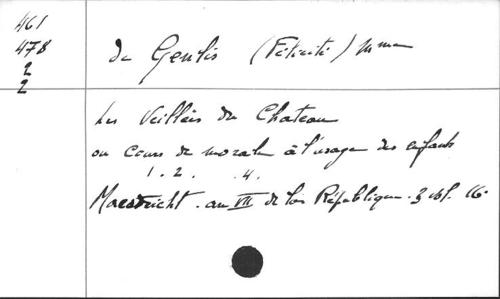 461
478
2
2
de Genlis (Félicité) Mme
Les Veillées du Chateau
ou cours de morale à l'usage des enfants
1. 2. 4.
Maestricht. an VII de la République. 3 vol. 16°